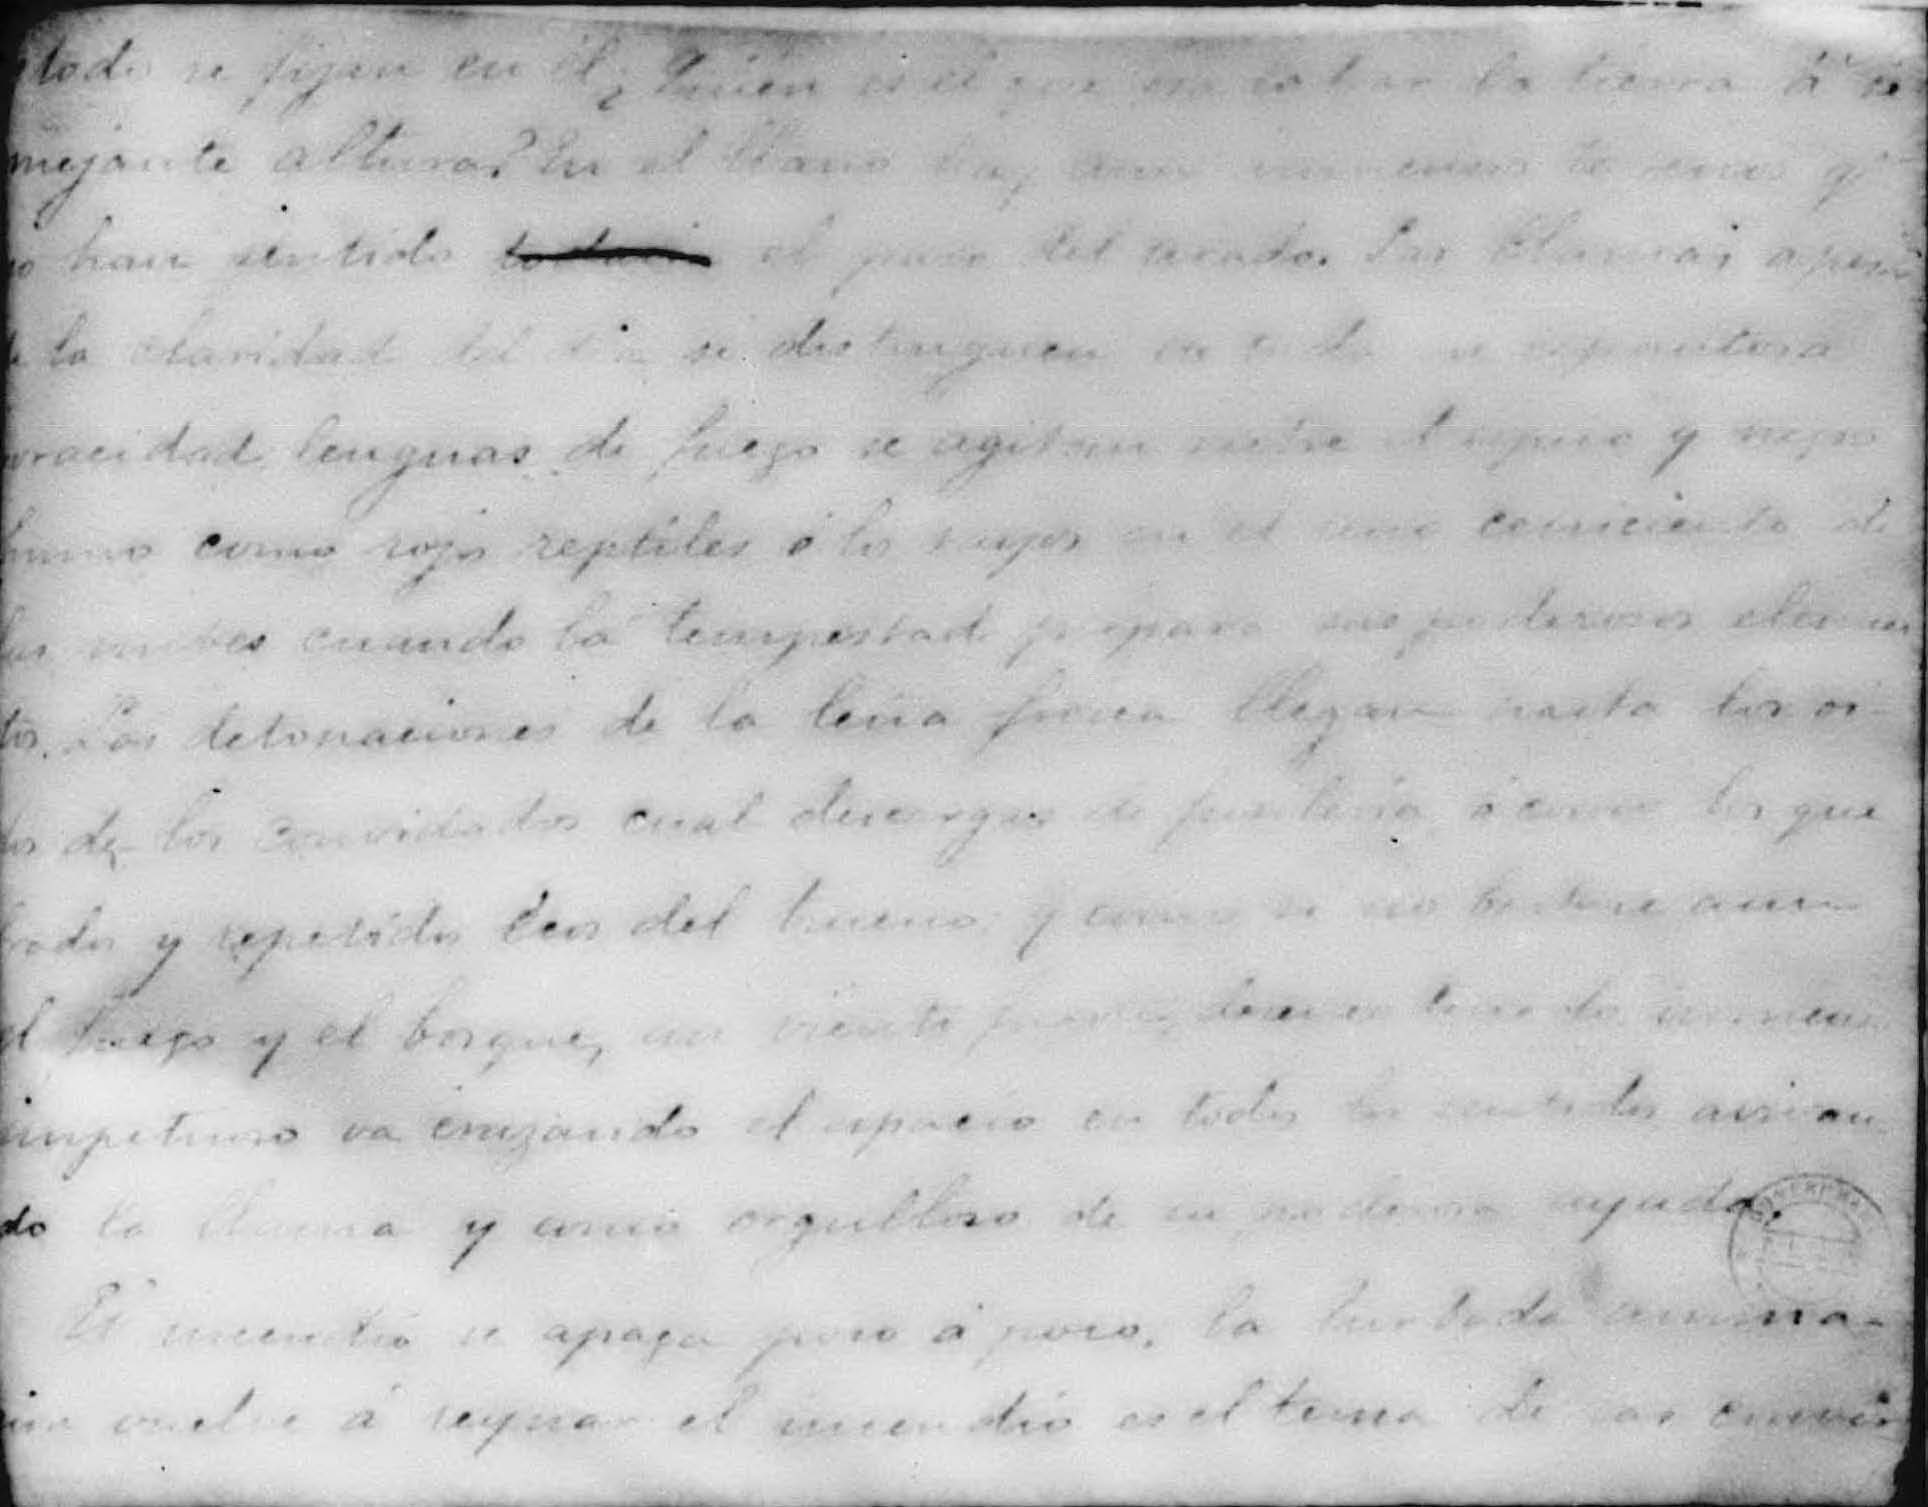 todos se fijan en él ¿Quién es el que osa labrar la tierra á se
mejante altura? En el llano hay aun inmensos terrenos q.
no han sentido el paso del arado. Las llamas apesar
de la claridad del dia se distinguen en toda su
voracidad, lenguas de fuego se agitan entre el espeso y negro
humo como rojos reptiles ó los rayos en el seno ceniciento de
las nubes cuando la tempestad prepara sus poderosos elemen
tos. Las detonaciones de la leña fresca llegan hasta los oi-
dos de los convidados cual descargas de fusilería ó como los que
brados y repetidos écos del trueno y como si no bastase aun
el fuego y el bosque, un viento inmenso
impetuoso va cruzando el espacio en todos los sentidos avivan
do la llama y como orgulloso de su poderosa ayuda.
El incendio se apaga poco á poco, la turbada
vuelve á reynar el incendio es el tema de las